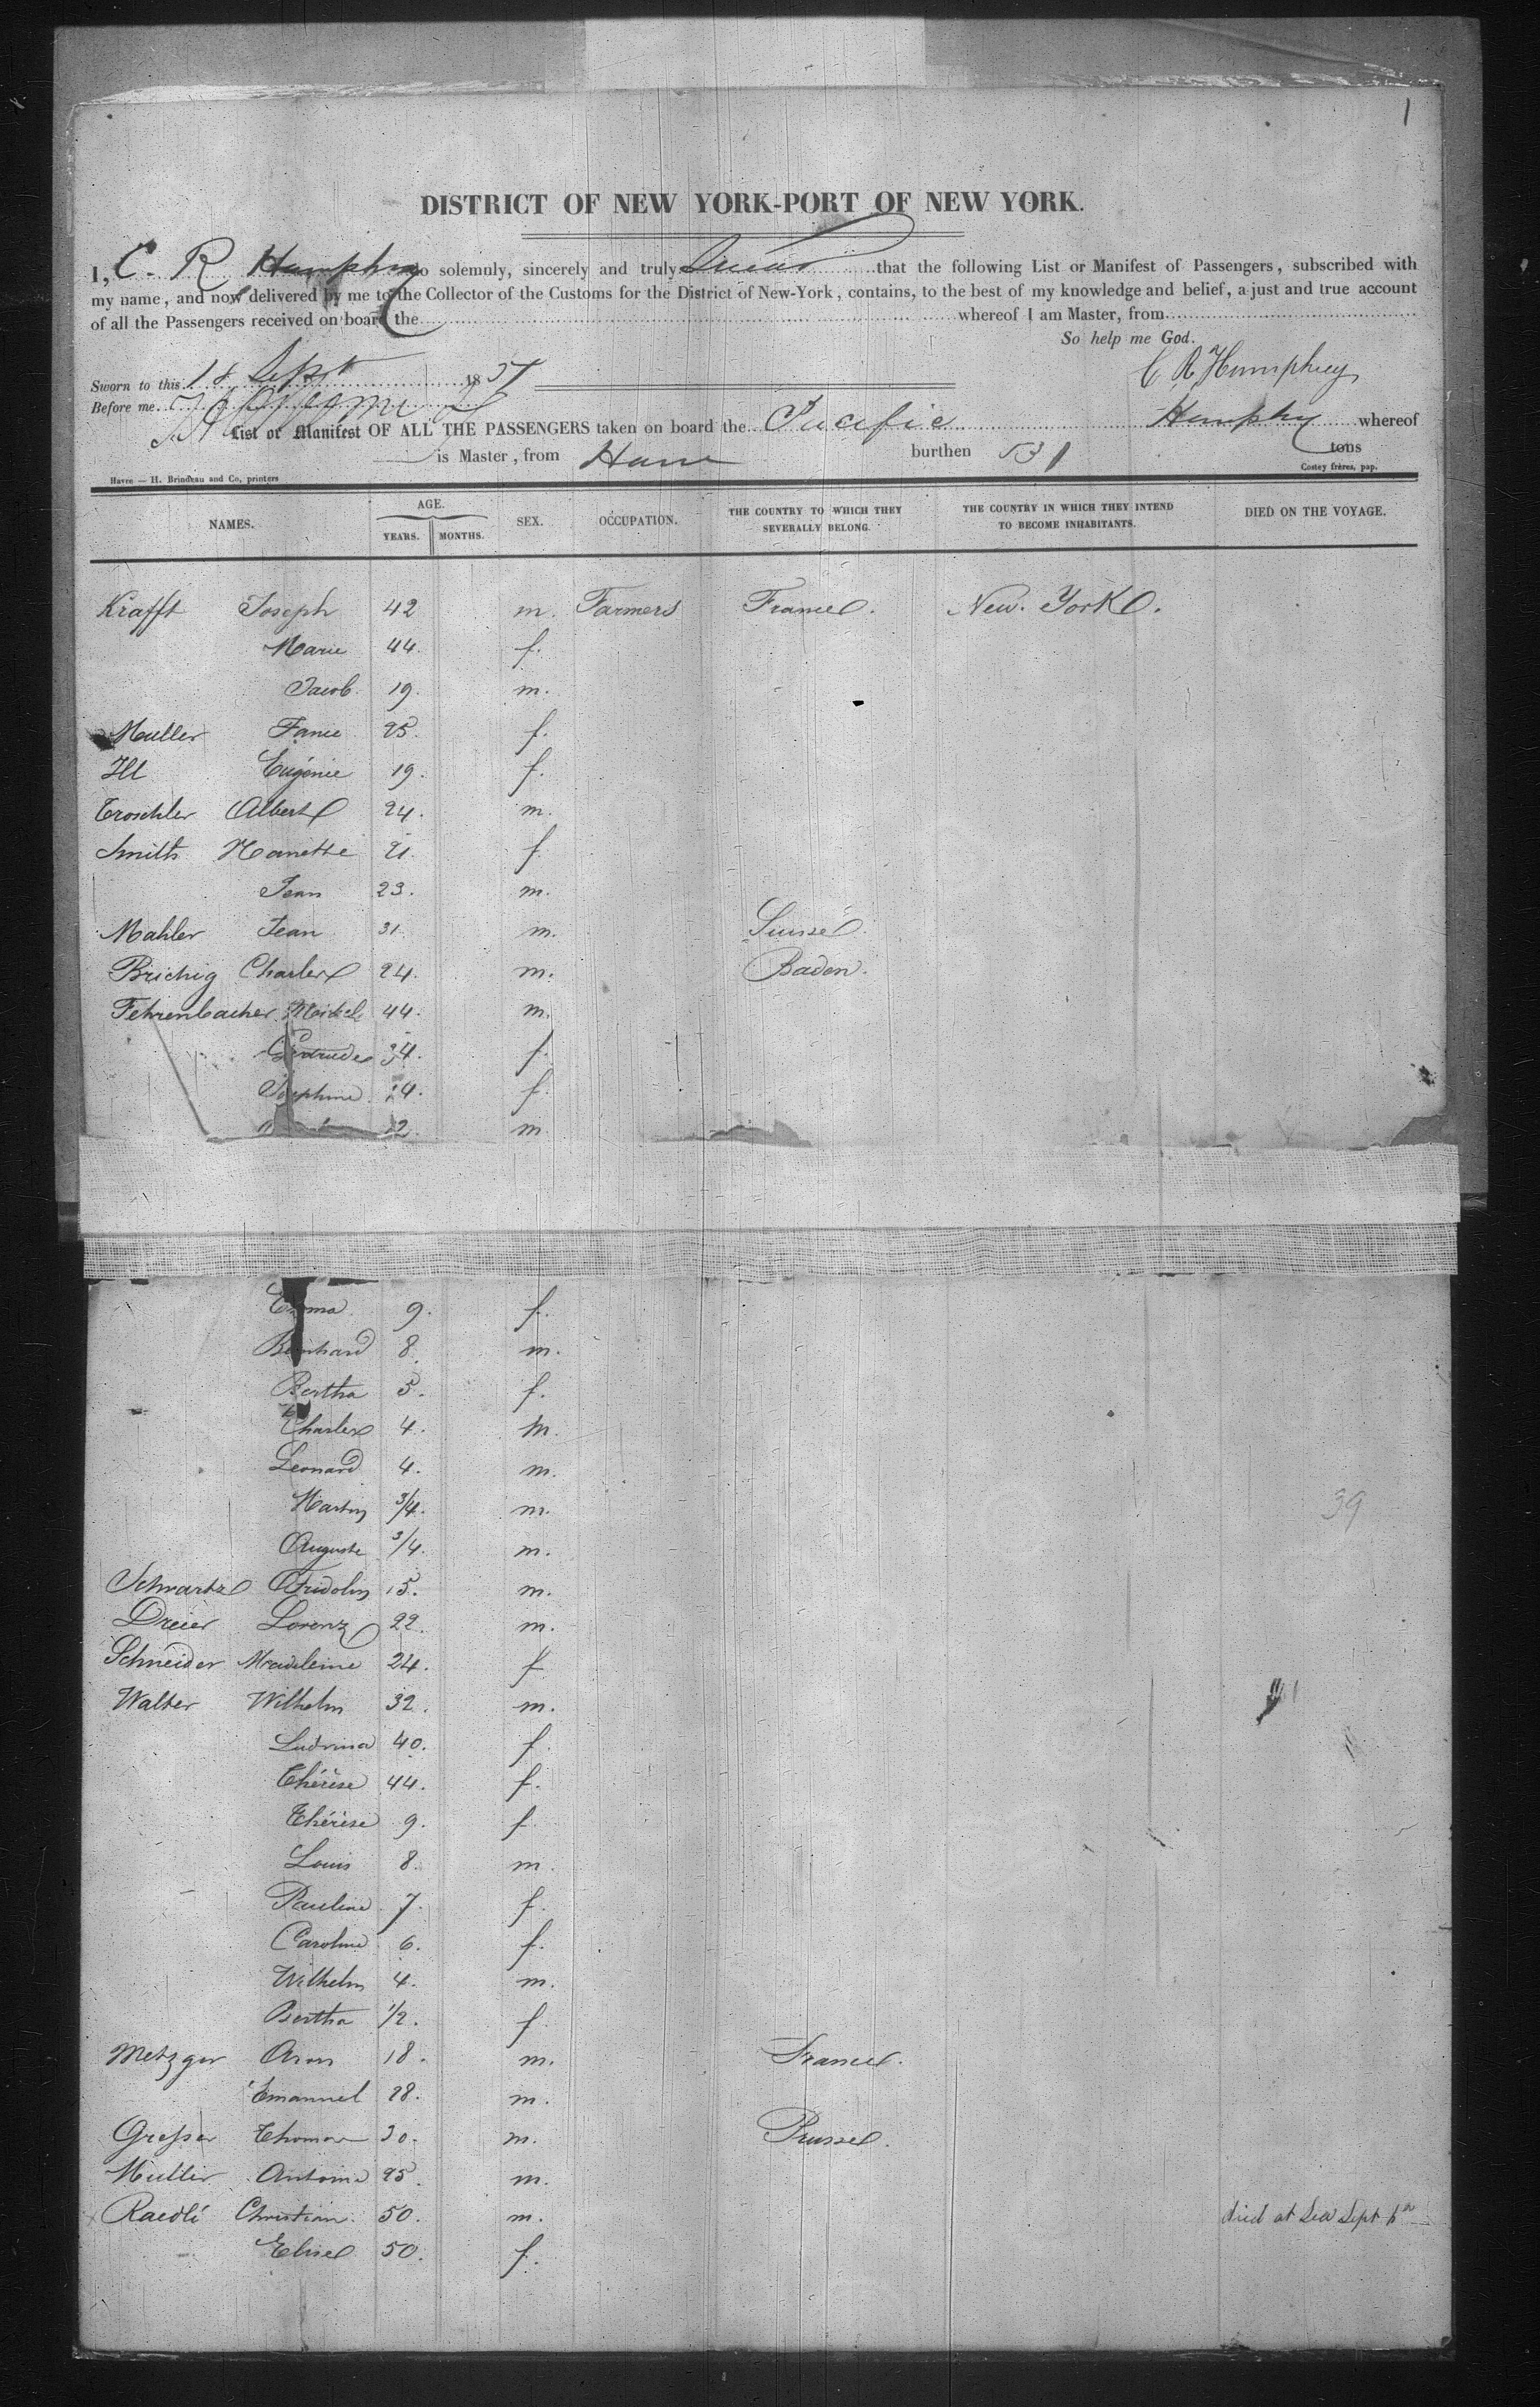 1
DISTRICT OF NEW YORK-PORT OF NEW YORK.
I, C. R Humphrey do solemnly, sincerely and truly Swear that the following List or Manifest of Passengers, subscribed with
my name, and now delivered by me to the Collector of the Customs for the District of New-York, contains, to the best of my knowledge and belief, a just and true account
of all the Passengers received on board the whereof I am Master, from
So help me God.
Sworn to this 18 Sept 1857
C R Humphrey
Before me
List or Manifest OF ALL THE PASSENGERS taken on board the Pacific Humphy whereof
is Master, from Havre burthen 531 tons
Havre — H. Brindeau and Co, printers Costey frères, pap.
NAMES. AGE. SEX. OCCUPATION. THE COUNTRY TO WHICH THEY SEVERALLY BELONG. THE COUNTRY IN WHICH THEY INTEND TO BECOME INHABITANTS. DIED ON THE VOYAGE.
YEARS. MONTHS.
Krafft Joseph 42 m. Farmers France. New. York.
Marie 44. f.
Jacob. 19. m.
Muller Fanie 25. f.
Ill Eugénie 19. f.
Troschler Albert 24. m.
Smith Nanette 21. f
Jean 23. m.
Mahler Jean 31 m. Suisse.
Brichig Charles 24. m. Baden.
Fehrenbacher Michel 44. m.
Gertrude 34. f.
Josephine. 14. f.
12. m
Emma. 9. f.
Bernhard 8. m.
Bertha 5. f.
Charles 4. m.
Leonard 4. m.
Martin 3/4. m.
39
Auguste 3/4. m.
Schwartz Fridolin 15. m.
Dreier Lorenz 22. m.
Schneider Madeleine 24. f
Walter Wilhelm 32. m.
Ludvina 40. f.
Thérèse 44. f.
Thérèse 9. f
Louis 8. m.
Pauline 7. f.
Caroline 6. f.
Wilhelm 4. m.
Bertha 1/2. f
Metzger Aron 18. m. France.
Emanuel 28. m.
Gresser Thomas 30. m. Prusse.
Muller Antoine 25. m.
Raedlé Christian. 50. m. died at Sea Sept 6th
Elise 50. f.